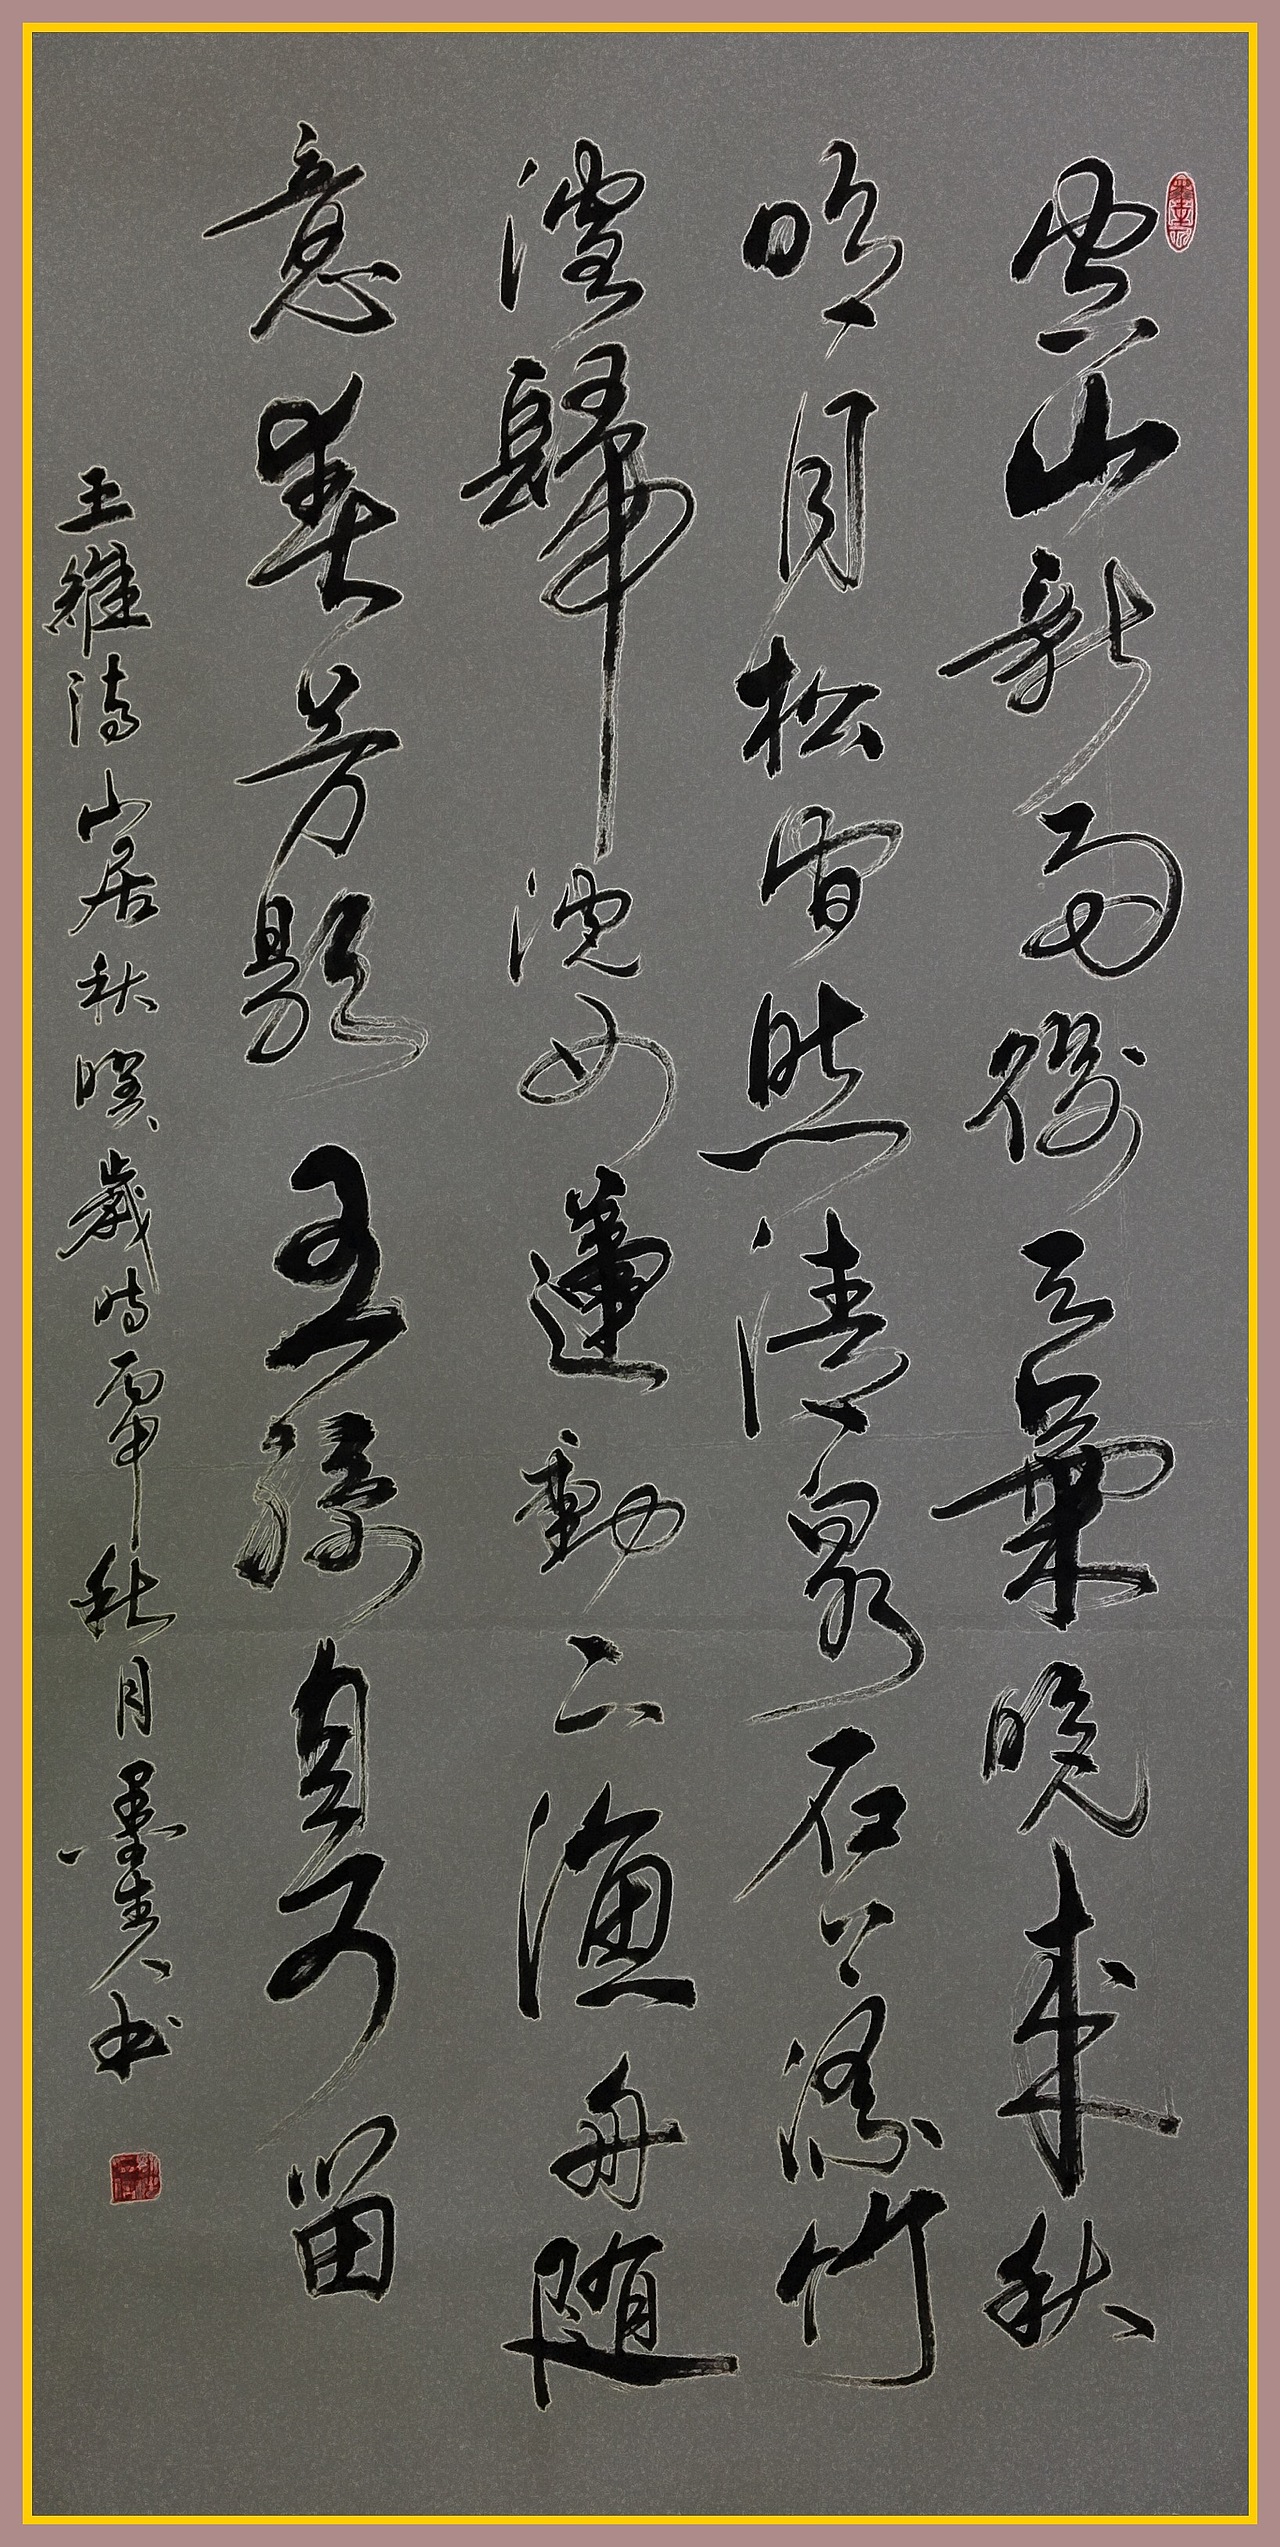 空山新雨後天氣晚來秋
明月松間照清泉石上流竹
渲歸浣女蓮動下漁舟随
意春芳歇王孫自可留
王維詩山居秋暝歲時丙申秋月墨主人书